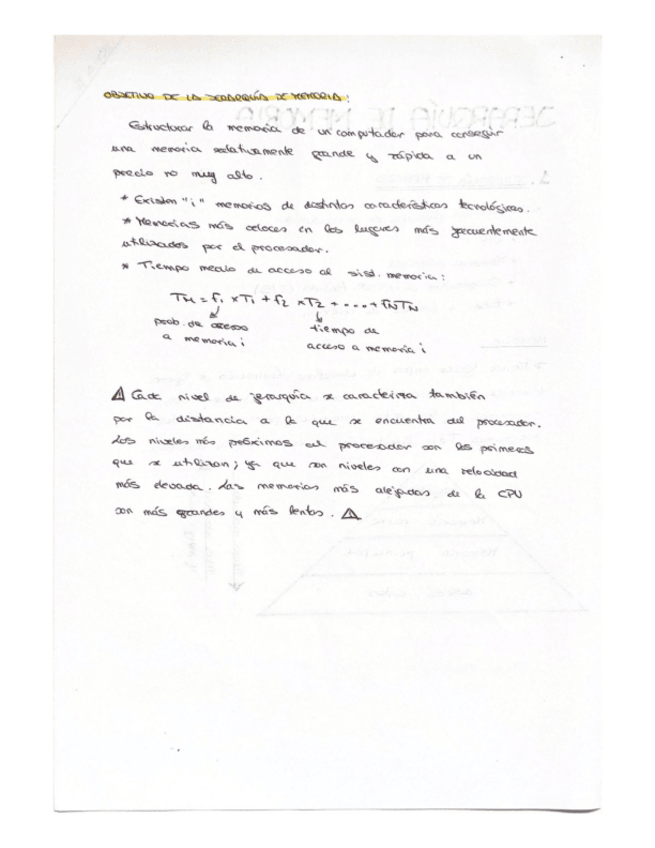 OBJETIVO DE LA JERARQUÍA DE MEMORIA:
Estructurar la memoria de un computador para conseguir
una memoria relativamente grande y rápida a un
precio no muy alto.
* Existen "i" memorias de distintas características tecnológicas.
* Memorias más veloces en los lugares más frecuentemente
utilizados por el procesador.
* Tiempo medio de acceso al sist. memoria:
TM = f1 x T1 + f2 x T2 + ... + fN TN
prob. de acceso
a memoria i
tiempo de
acceso a memoria i
⚠ Cada nivel de jerarquía se caracteriza también
por la distancia a la que se encuentra del procesador.
Los niveles más próximos al procesador son los primeros
que se utilizan; ya que son niveles con una velocidad
más elevada. Las memorias más alejadas de la CPU
son más grandes y más lentas. ⚠
JERARQUÍA DE MEMORIA